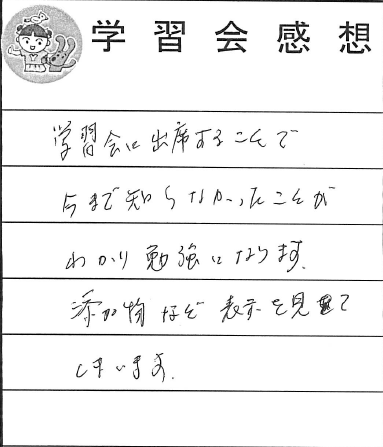 学習会感想
学習会に出席することで
今まで知らなかったことが
わかり勉強になります。
添加物など表示を見て
しまいます。